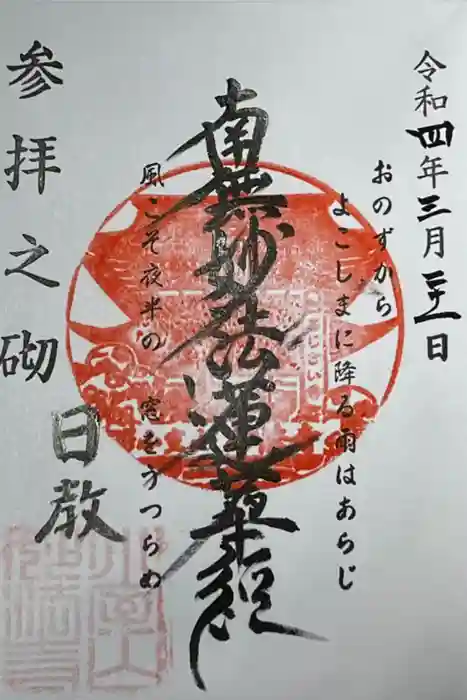 令和四年三月二十一日
おのずから
よこしまに降る雨はあらじ
南無妙法蓮華経
風こそ夜半の窓をうつらめ
参拝之砌
日教